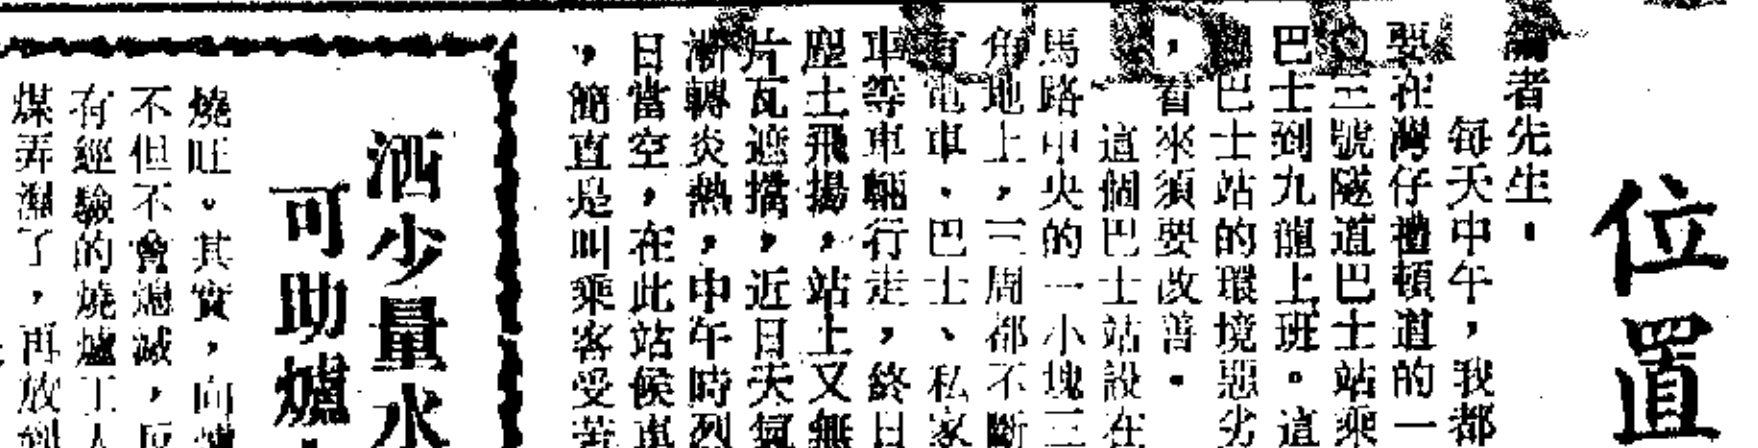 位置
者先生：
每天中午，我都
要在灣仔禮頓道的一
〇三號隧道巴士站乘
巴士到九龍上班。這
巴士站的環境惡劣
，看來須要改善。
這個巴士站設在
馬路中央的一小塊三
角地上，三周都不斷
有電車、巴士、私家
車等車輛行走，終日
塵土飛揚，站上又無
片瓦遮擋，近日天氣
漸轉炎熱，中午時烈
日當空，在此站候車
，簡直是叫乘客受苦
洒少量水
可助爐
燒旺。其實，向
不但不會熄滅，反
有經驗的燒爐工人
煤弄濕了，再放到